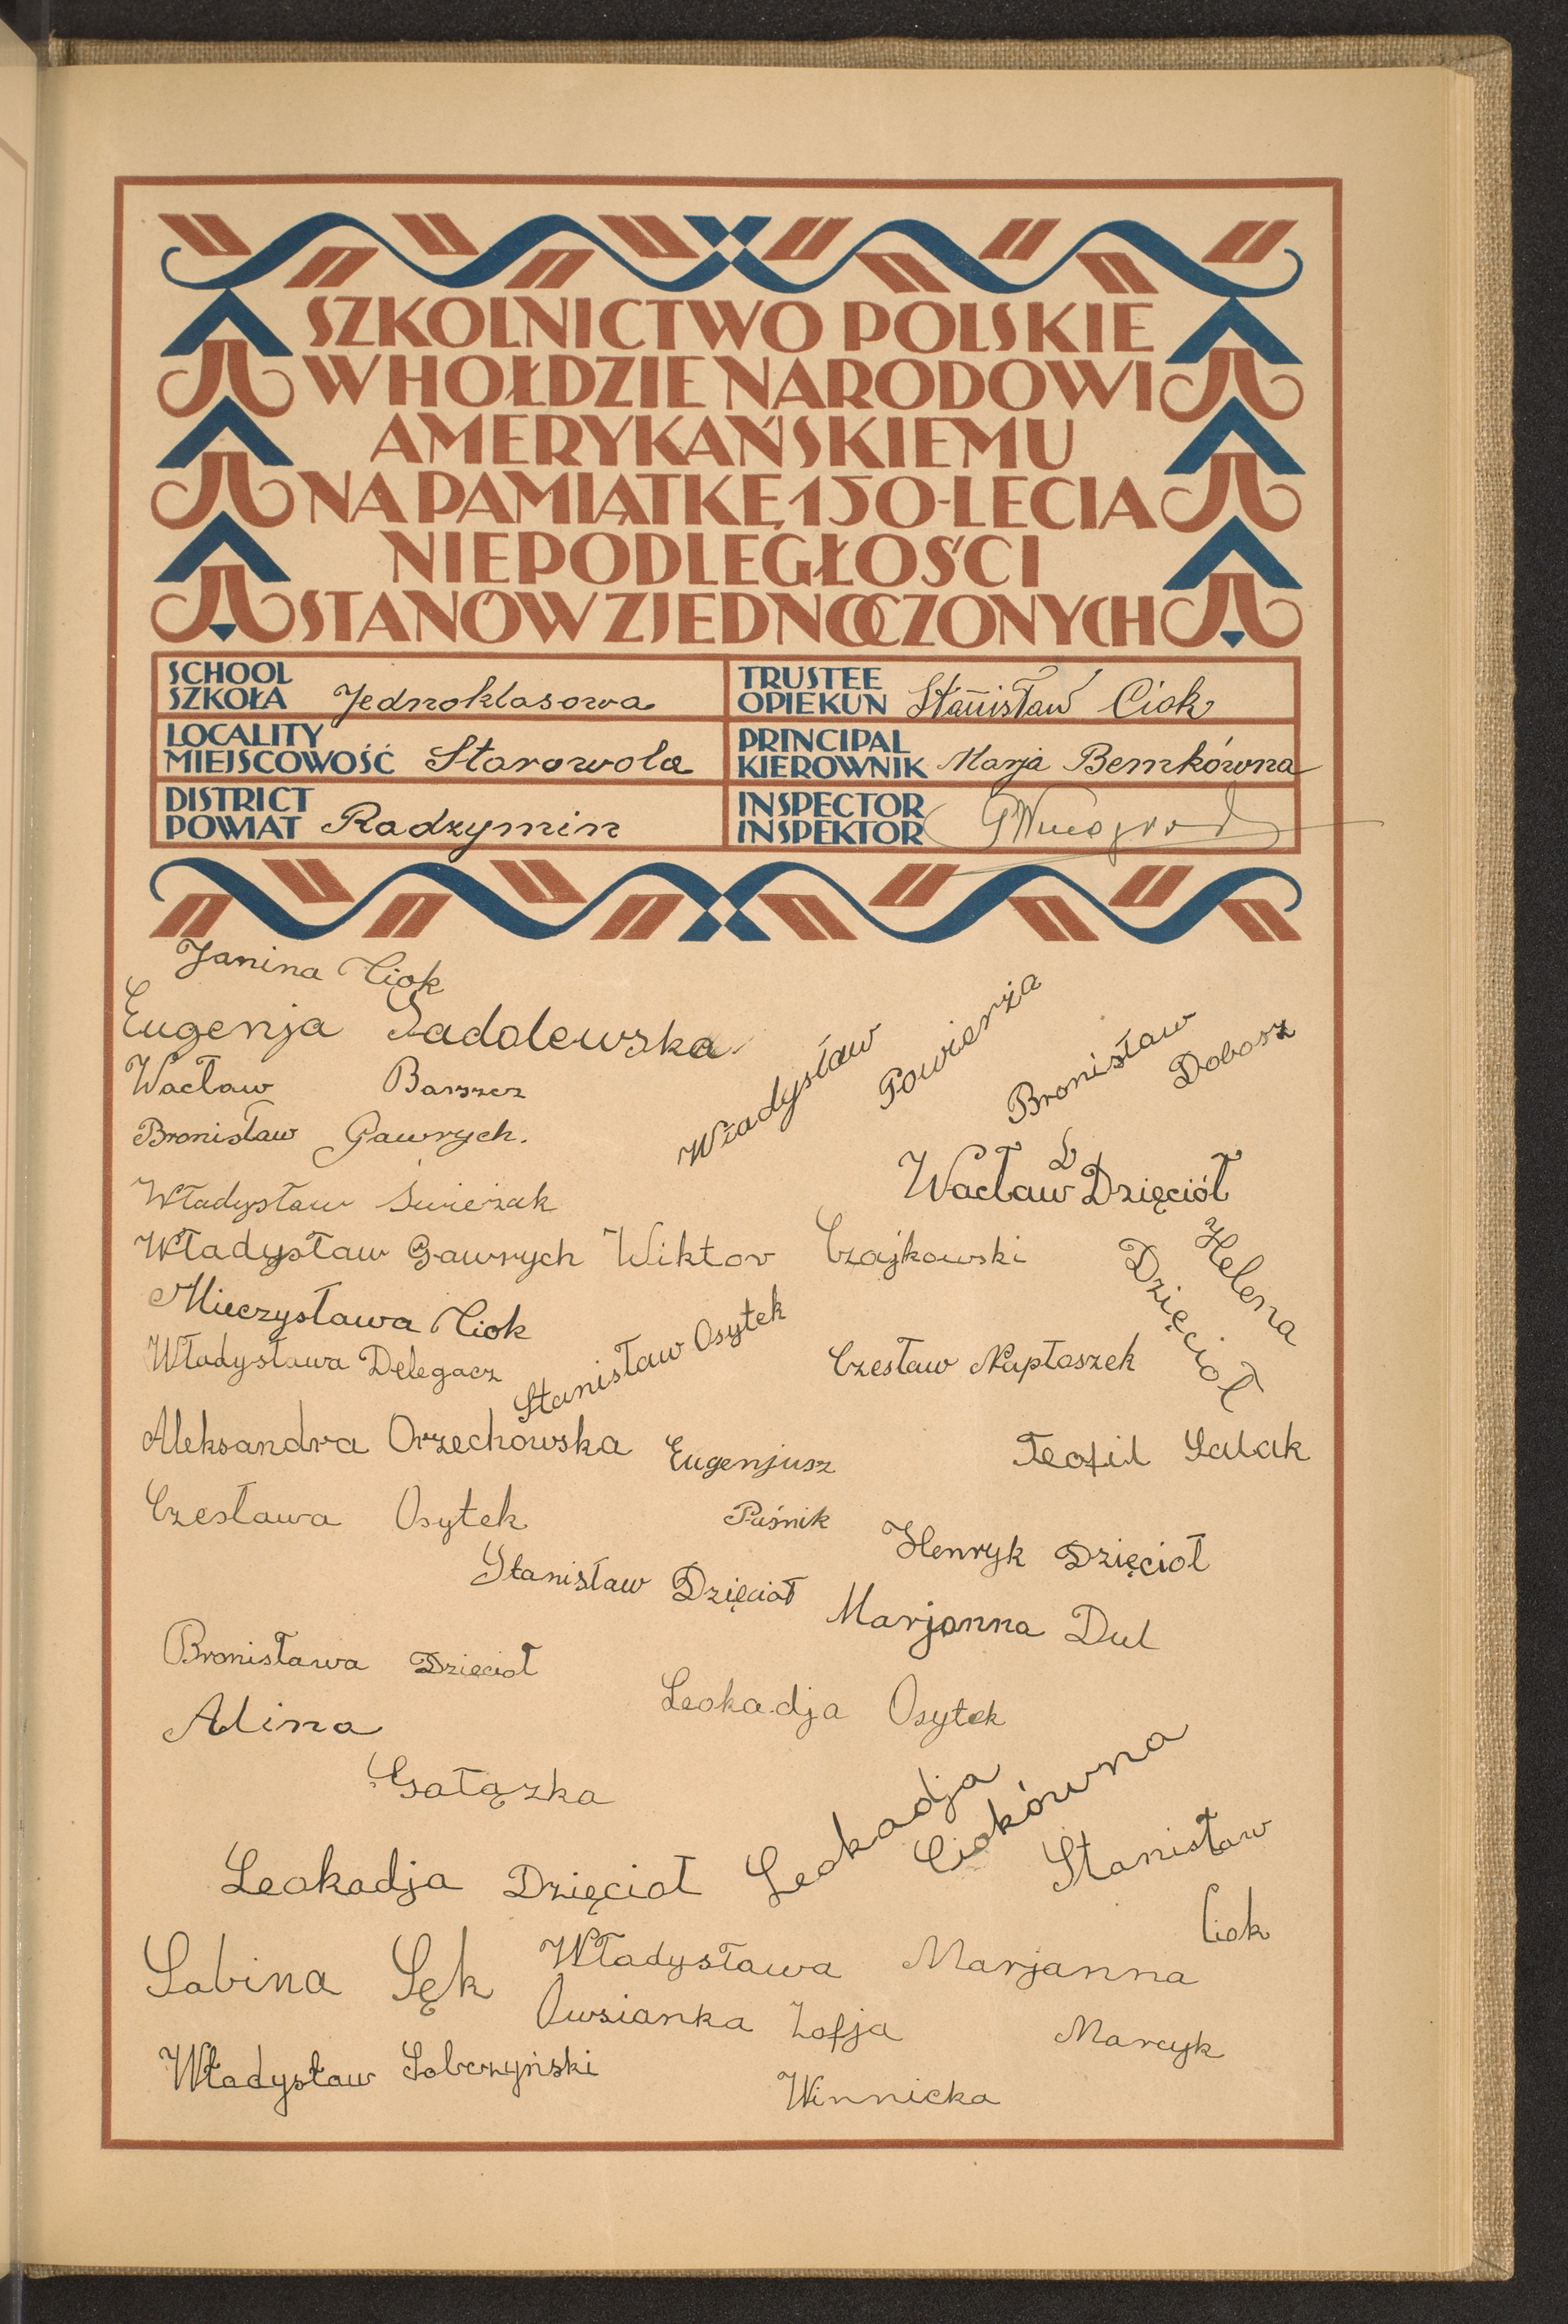 SZKOLNICTWO POLSKIE
W HOŁDZIE NARODOWI
AMERYKAŃSKIEMU
NA PAMIĄTKĘ 150-LECIA
NIEPODLEGŁOŚCI
STANÓW ZJEDNOCZONYCH
SCHOOL
SZKOŁA Jednoklasowa
TRUSTEE
OPIEKUN Stanisław Ciok
LOCALITY
MIEJSCOWOŚĆ Starowola
PRINCIPAL
KIEROWNIK Marja Bemkówna
DISTRICT
POWIAT Radzymin
INSPECTOR
INSPEKTOR
Janina Ciok
Eugenja Sadolewska
Wacław Barszcz
Bronisław Gawrych.
Władysław Powierża
Bronisław Dobosz
Władysław Świeżak
Wacław D Dzięciół
Władysław Gawrych
Wiktor Czajkowski
Helena Dzięcioł
Mieczysława Ciok
Władysława Delegacz
Stanisław Osytek
Czesław Napłoszek
Aleksandra Orzechowska
Eugenjusz
Paśnik
Teofil Salak
Czesława Osytek
Henryk Dzięcioł
Stanisław Dzięcioł
Marjanna Dul
Bronisława Dzięcioł
Leokadja Osytek
Alina
Gałązka
Leokadja Dzięcioł
Leokadja
Ciokówna
Stanisław
Ciok
Sabina Sęk
Władysława
Owsianka
Marjanna
Marcyk
Zofja
Winnicka
Władysław Sobczyński